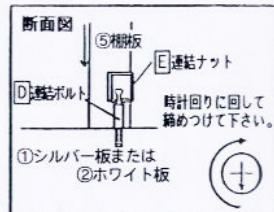 断面図
⑤棚板
E連結ナット
D連結ボルト
時計回りに回して
締めつけて下さい。
①シルバー板または
②ホワイト板